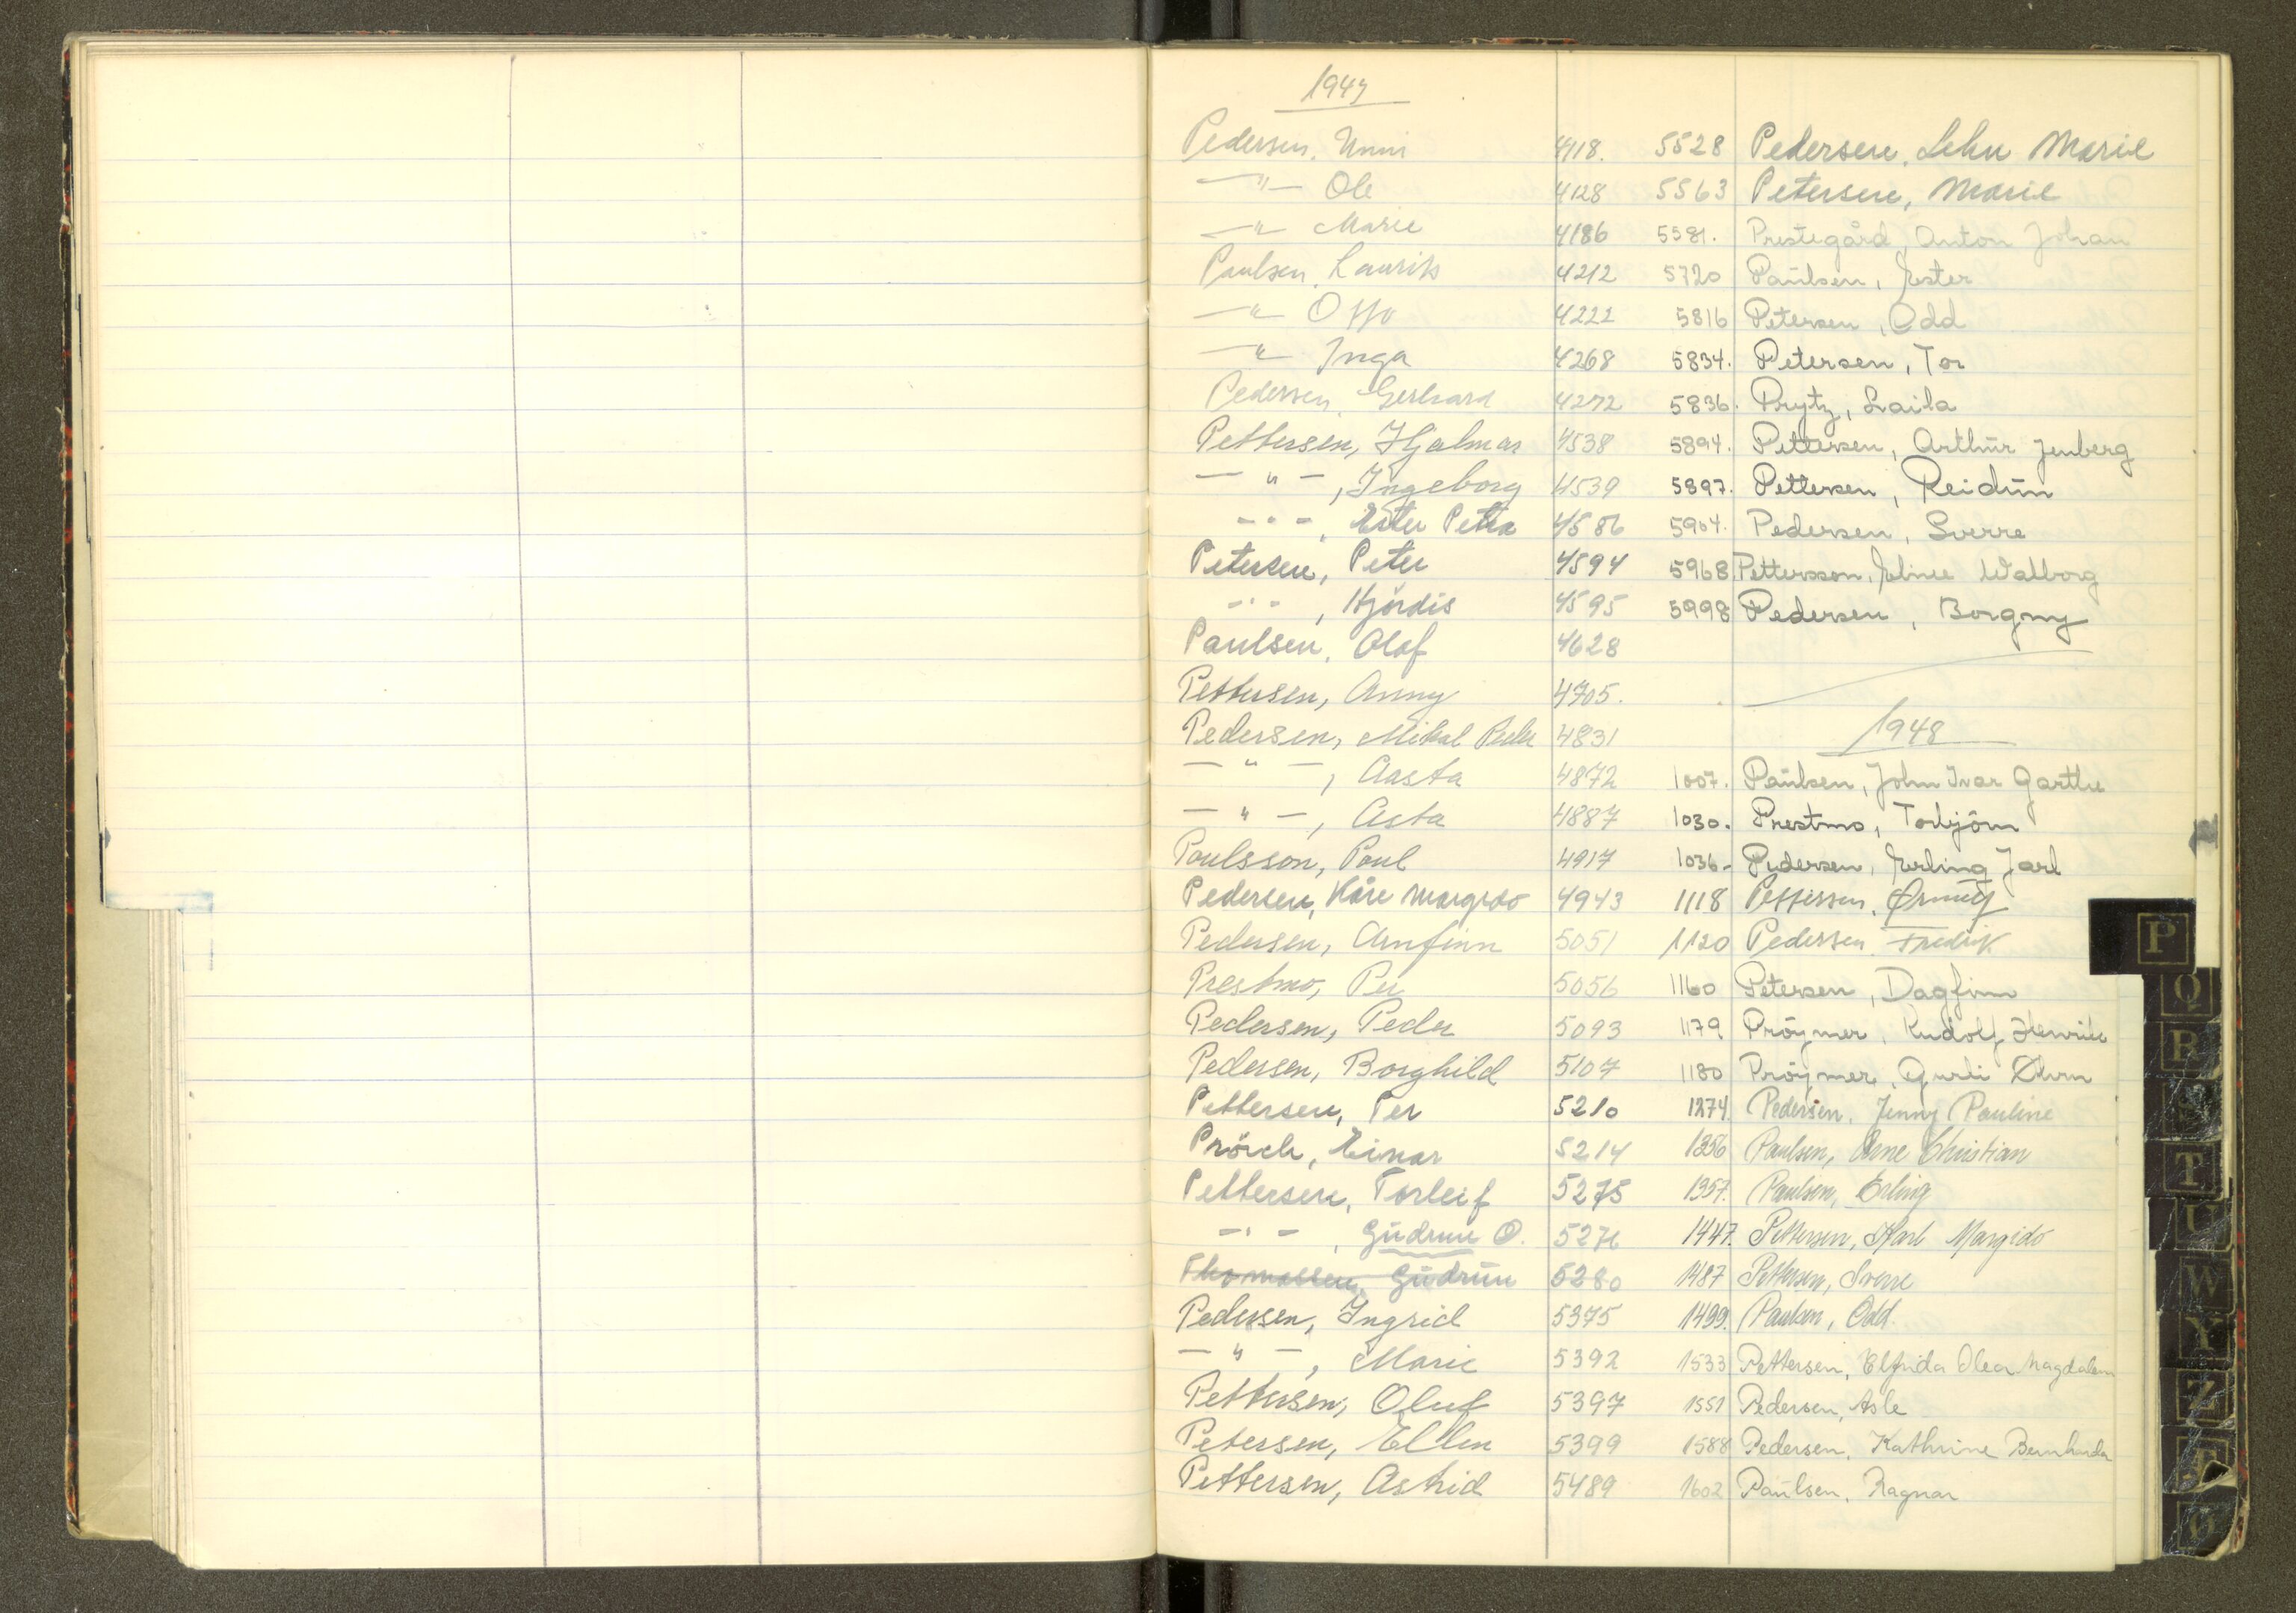 1947
Pedersen, Unni 4118. 5528 Pedersen, Marie
—"— Ole 4128 5563 Petersen, Marie
—"— Marie 4186 5581. Prestegård, Anton Johan
Paulsen, Laurits 4212 5720 Paulsen, Ester
—"— Otto 4222 5816 Petersen, Odd
—"— Inga 4268 5834. Petersen, Tor
Pedersen, Gerhard 4272 5836. Prytz, Laila
Pettersen, Hjalmar 4538 5894. Pettersen, Arthur Jenberg
—"—, Ingeborg 4539 5897. Pettersen, Reidun
—"—, Ester Petra 4586 5904. Pedersen, Sverre
Petersen, Peter 4594 5968 Pettersson, Eline Walborg
—"—, Hjördis 4595 5998 Pedersen, Borgny
Paulsen, Olaf 4628
Pettersen, Anny 4705.
Pedersen, Mikal 4831
1948
—"—, Aasta 4872 1007. Paulsen, John Ivar Garthe
—"—, Asta 4887 1030. Prestmo, Torbjörn
Paulsson, Paul 4917 1036- Pedersen, Erling Jarl
Pedersen, Kåre Margido 4943 1118 Pettersen,
Pedersen, Arnfinn 5051 1120 Pedersen, Fredrik
Prestmo, Per 5056 1160 Petersen, Dagfinn
Pedersen, Peder 5093 1179 Pröymer, Rudolf Henrik
Pedersen, Borghild 5107 1180 Pröymer, Gurli
Pettersen, Per 5210 1274. Pedersen, Jenny Pauline
Prösch, Einar 5214 1356 Paulsen, Arne Christian
Pettersen, Torleif 5275 1357. Paulsen, Erling
—"—, Gudrun O. 5276 1447. Pettersen, Karl Margido
Thomassen, Gudrun 5280 1487 Pettersen, Sverre
Pedersen, Ingrid 5375 1499. Paulsen, Odd.
—"—, Marie 5392 1533 Pettersen, Elfrida Olea Magdalena
Pettersen, Oluf 5397 1551 Pedersen, Asle
Petersen, Ellen 5399 1588 Pedersen, Kathrine Bernharda
Pettersen, Astrid 5489 1602 Paulsen, Ragnar
P
Q
R
S
T
U
W
Y
Z
Æ
Ø